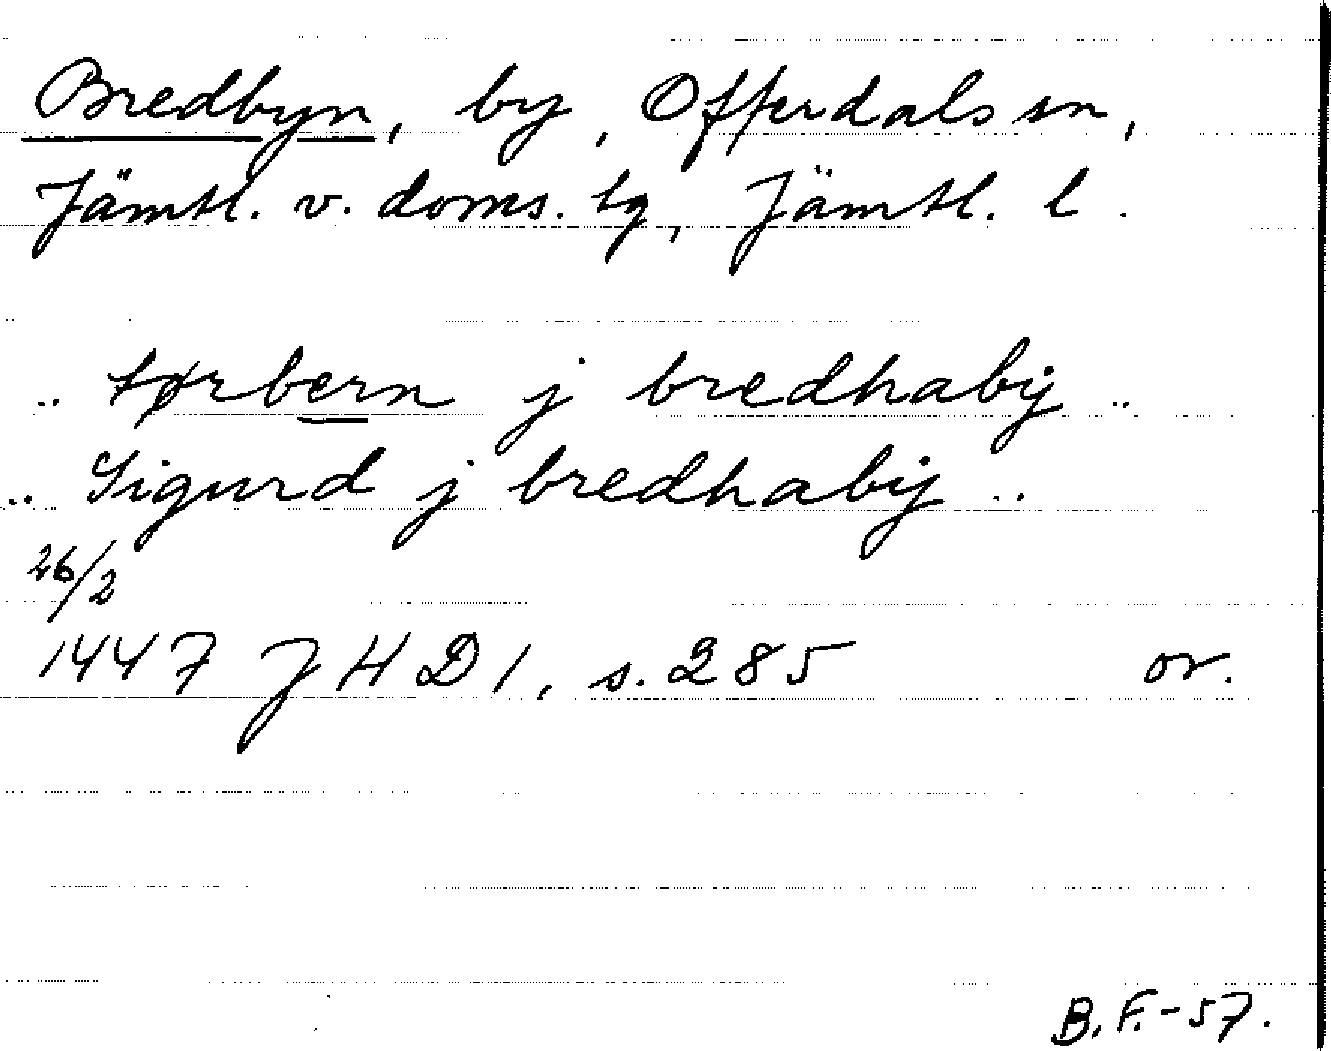 Bredbyn, by, Offerdals sn,
Jämtl. v. doms. tg, Jämtl. l.
.. tørbern j bredhabij ..
.. Sigurd j bredhabij ..
26/2
1447 JHD 1, s. 285 or.
B.F.-57.